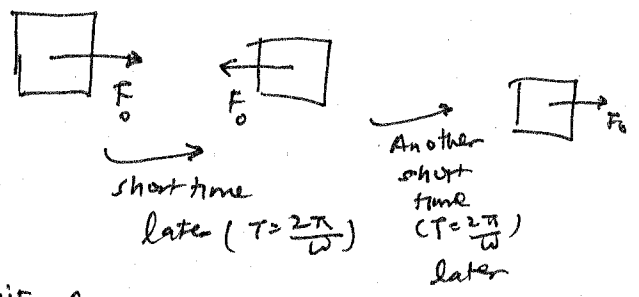 F₀
F₀
F₀
short time
later (T = 2π/ω)
Another
short
time
(T = 2π/ω)
later